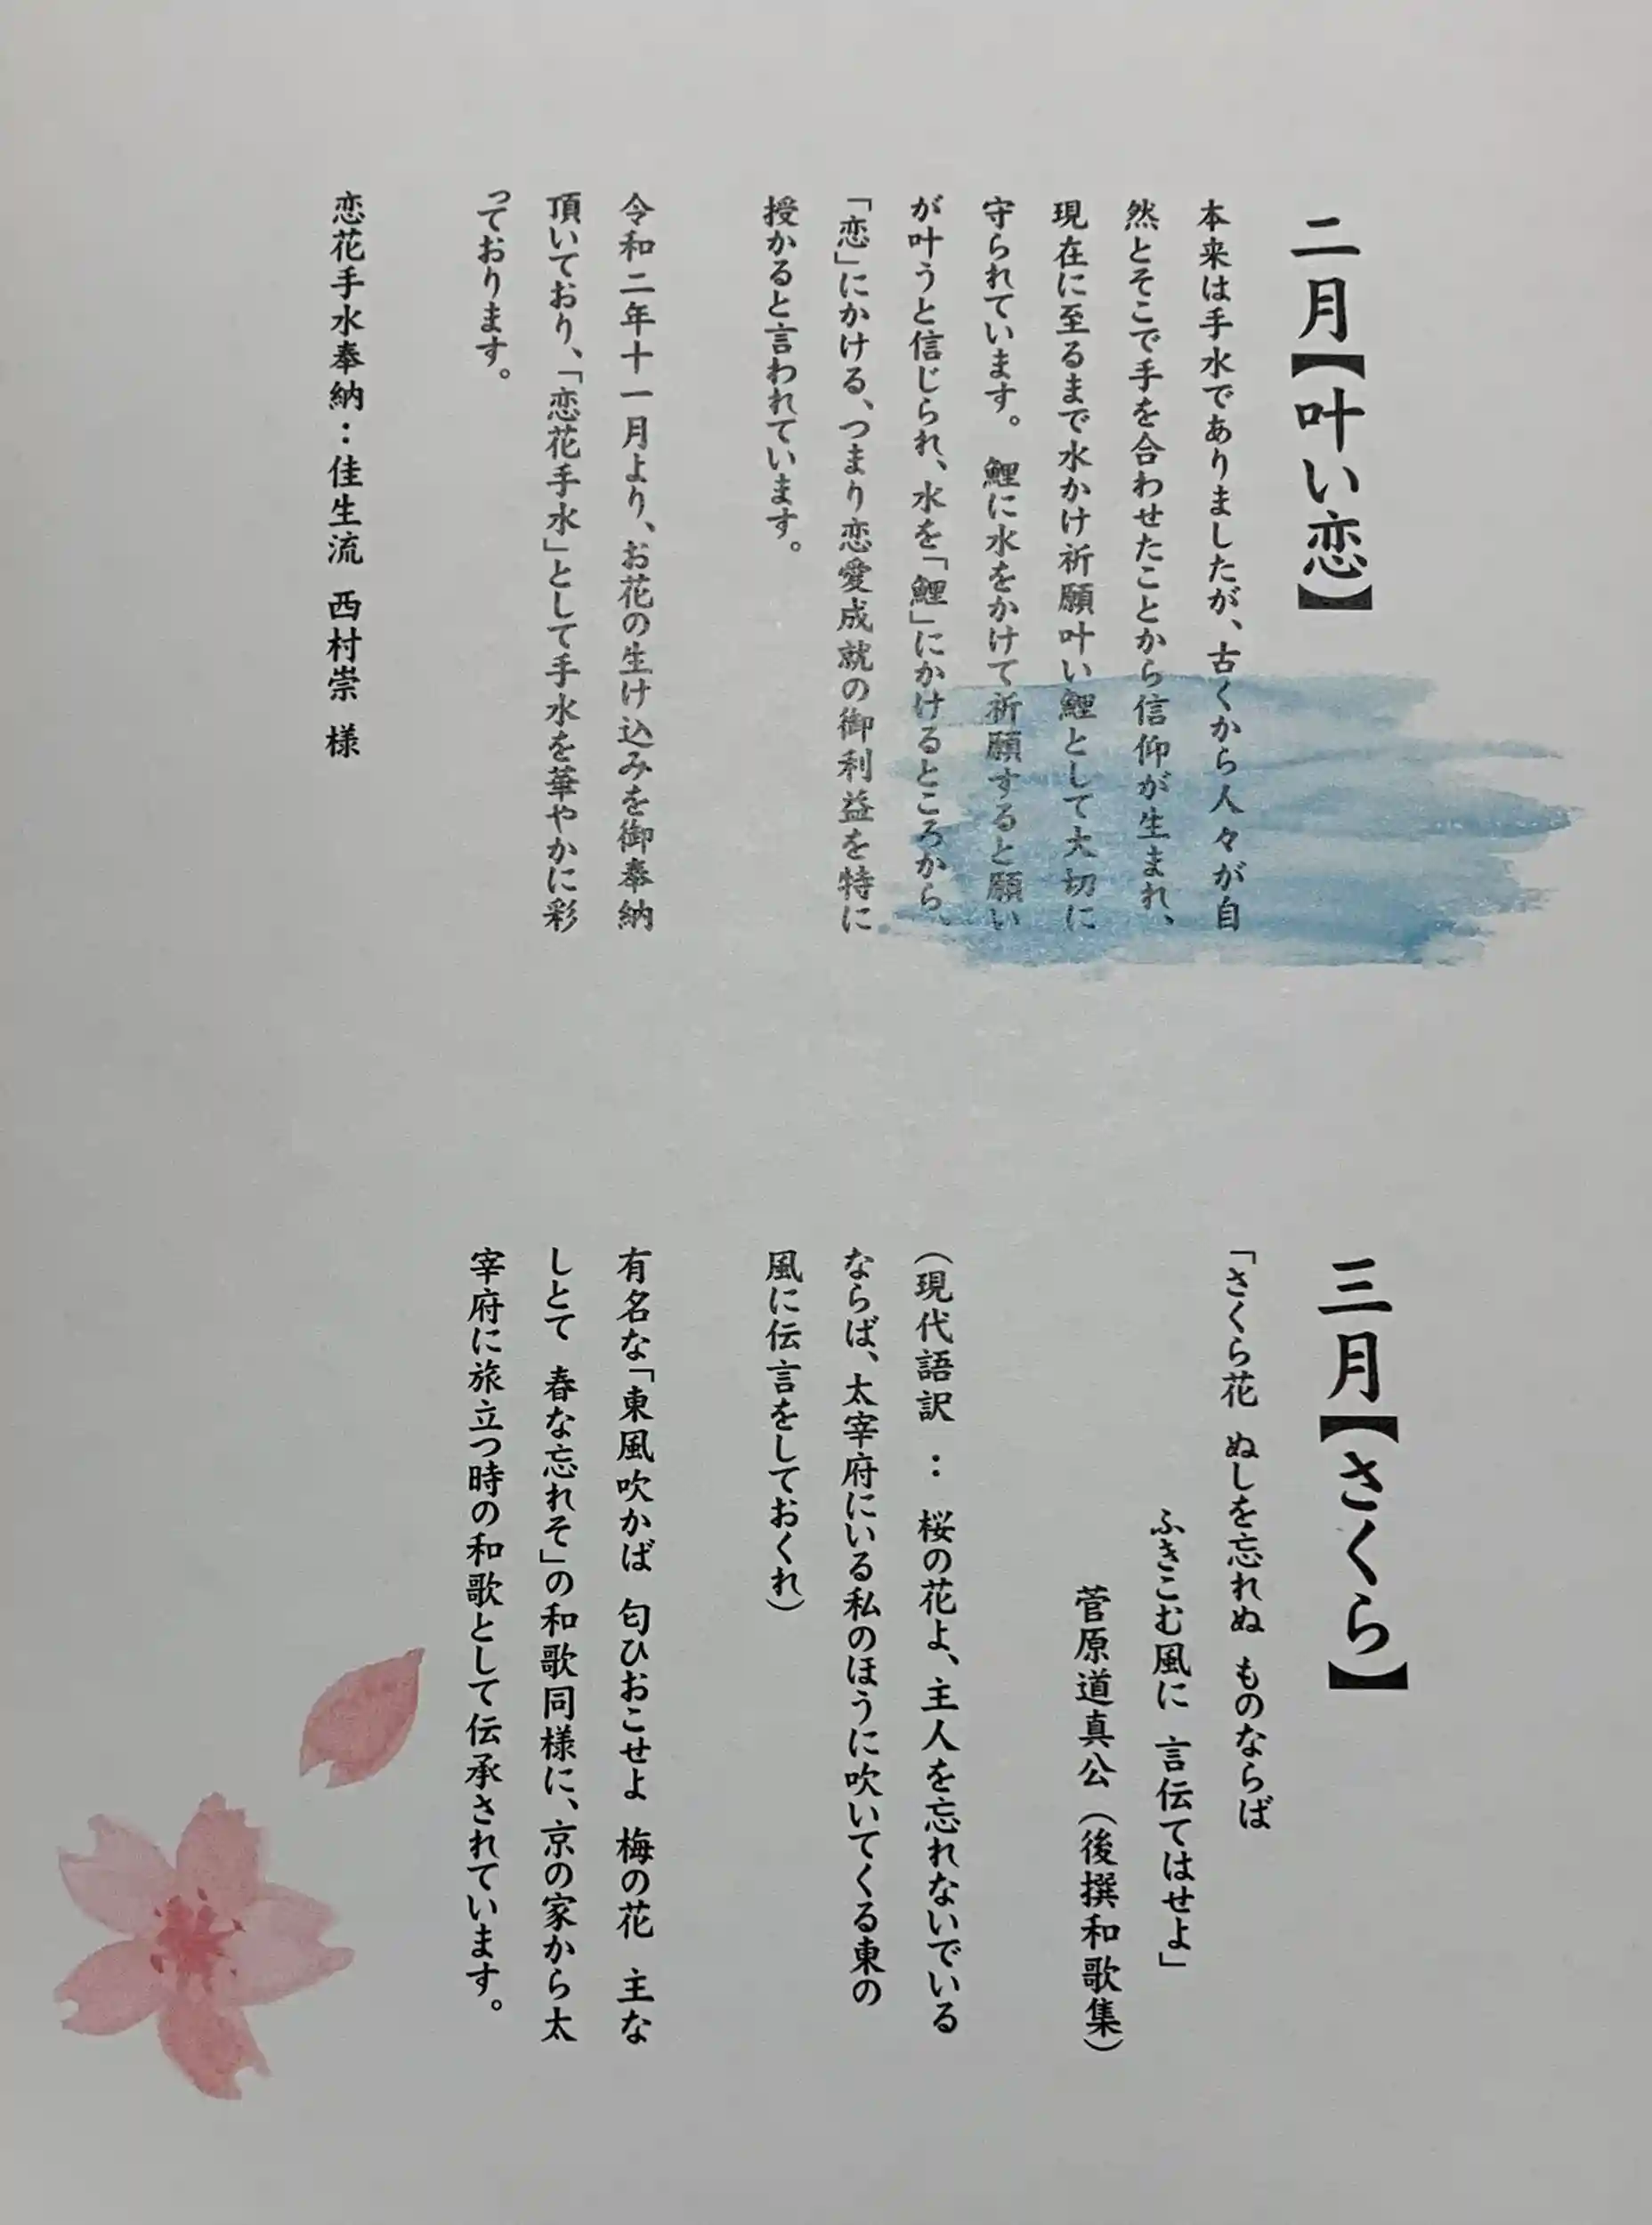 二月【叶い恋】
本来は手水でありましたが、古くから人々が自
然とそこで手を合わせたことから信仰が生まれ、
現在に至るまで水かけ祈願叶い鯉として大切に
守られています。鯉に水をかけて祈願すると願い
が叶うと信じられ、水を「鯉」にかけるところから、
「恋」にかける、つまり恋愛成就の御利益を特に
授かると言われています。
令和二年十一月より、お花の生け込みを御奉納
頂いており、「恋花手水」として手水を華やかに彩
っております。
恋花手水奉納：佳生流 西村崇 様
三月【さくら】
「さくら花 ぬしを忘れぬ ものならば
ふきこむ風に 言伝てはせよ」
菅原道真公（後撰和歌集）
（現代語訳 ： 桜の花よ、主人を忘れないでいる
ならば、太宰府にいる私のほうに吹いてくる東の
風に伝言をしておくれ）
有名な「東風吹かば 匂ひおこせよ 梅の花 主な
しとて 春な忘れそ」の和歌同様に、京の家から太
宰府に旅立つ時の和歌として伝承されています。